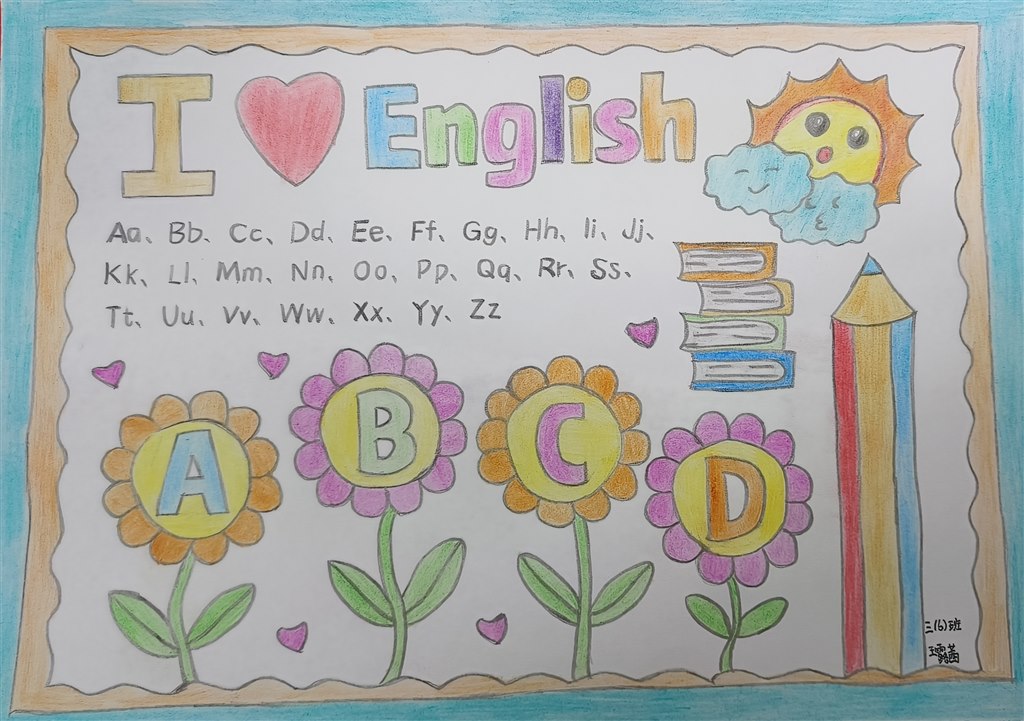 I ❤ English
Aa、Bb、Cc、Dd、Ee、Ff、Gg、Hh、Ii、Jj、
Kk、Ll、Mm、Nn、Oo、Pp、Qq、Rr、Ss、
Tt、Uu、Vv、Ww、Xx、Yy、Zz
A B C D
三(6)班
王露茜